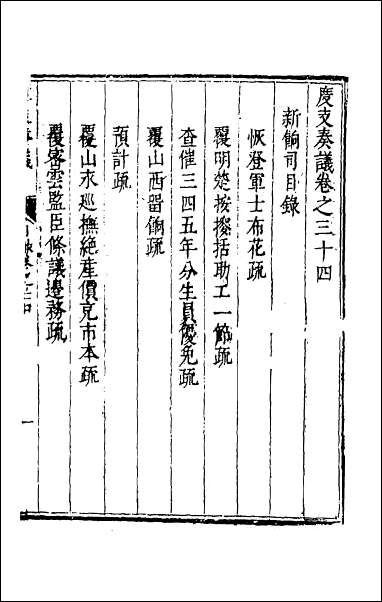 度支奏議卷之三十四
新餉司目錄
恢登軍士布花疏
覆明楚按搜括助工一節疏
查催三四五年分生員優免疏
覆山西留餉疏
預計疏
覆山永巡撫絶産價克市本疏
覆密雲監臣條議邊務疏
一